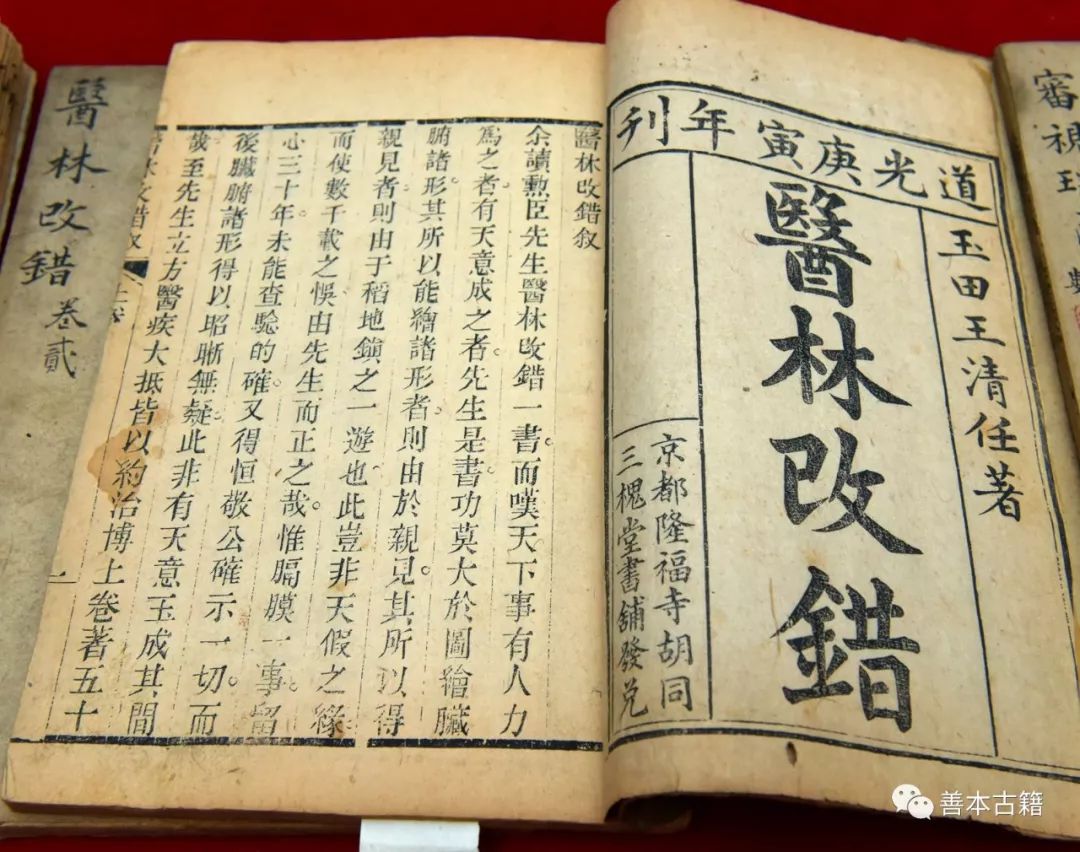 道光庚寅年刊
玉田王清任著
醫林改錯
京都隆福寺胡同
三槐堂書鋪發兌
醫林改錯敘
余讀勲臣先生醫林改錯一書而嘆天下事有人力
爲之者有天意成之者先生是書功莫大於圖繪臟
腑諸形其所以能繪諸形者則由於親見其所以得
親見者則由于稻地鎮之一遊也此豈非天假之緣
而使數千載之悞由先生而正之哉惟膈膜一事留
心三十年未能查騐的確又得恒敬公確示一切而
後臟腑諸形得以昭晰無疑此非有天意玉成其間
哉至先生立方醫疾大抵皆以約治博上卷著五十
醫林改錯敘
一
醫林改錯 卷貳
審視
善本古籍